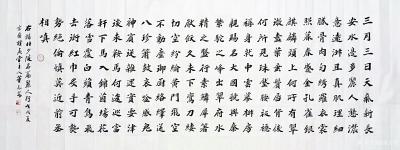 三月三日天氣新長
安水邊多麗人態濃
意遠淑且真肌理細
膩骨肉勻繡羅衣裳
照暮春蹙金孔雀銀
麒麟頭上何所有翠
微盍葉垂鬢唇背後
何所見珠壓腰衱穩
稱身就中雲幕椒房
親賜名大國虢與秦
紫駝之峰出翠釜水
精之盤行素鱗犀箸
厭飫久未下鸞刀縷
切空紛綸黃門飛鞚
不動塵御廚絡繹送
八珍簫鼓哀吟感鬼
神賓從雜遝實要津
後來鞍馬何逡巡當
軒下馬入錦茵楊花
雪落覆白蘋青鳥飛
去銜紅巾炙手可熱
勢絕倫慎莫近前丞
相嗔
右錄杜少陵名篇麗人行